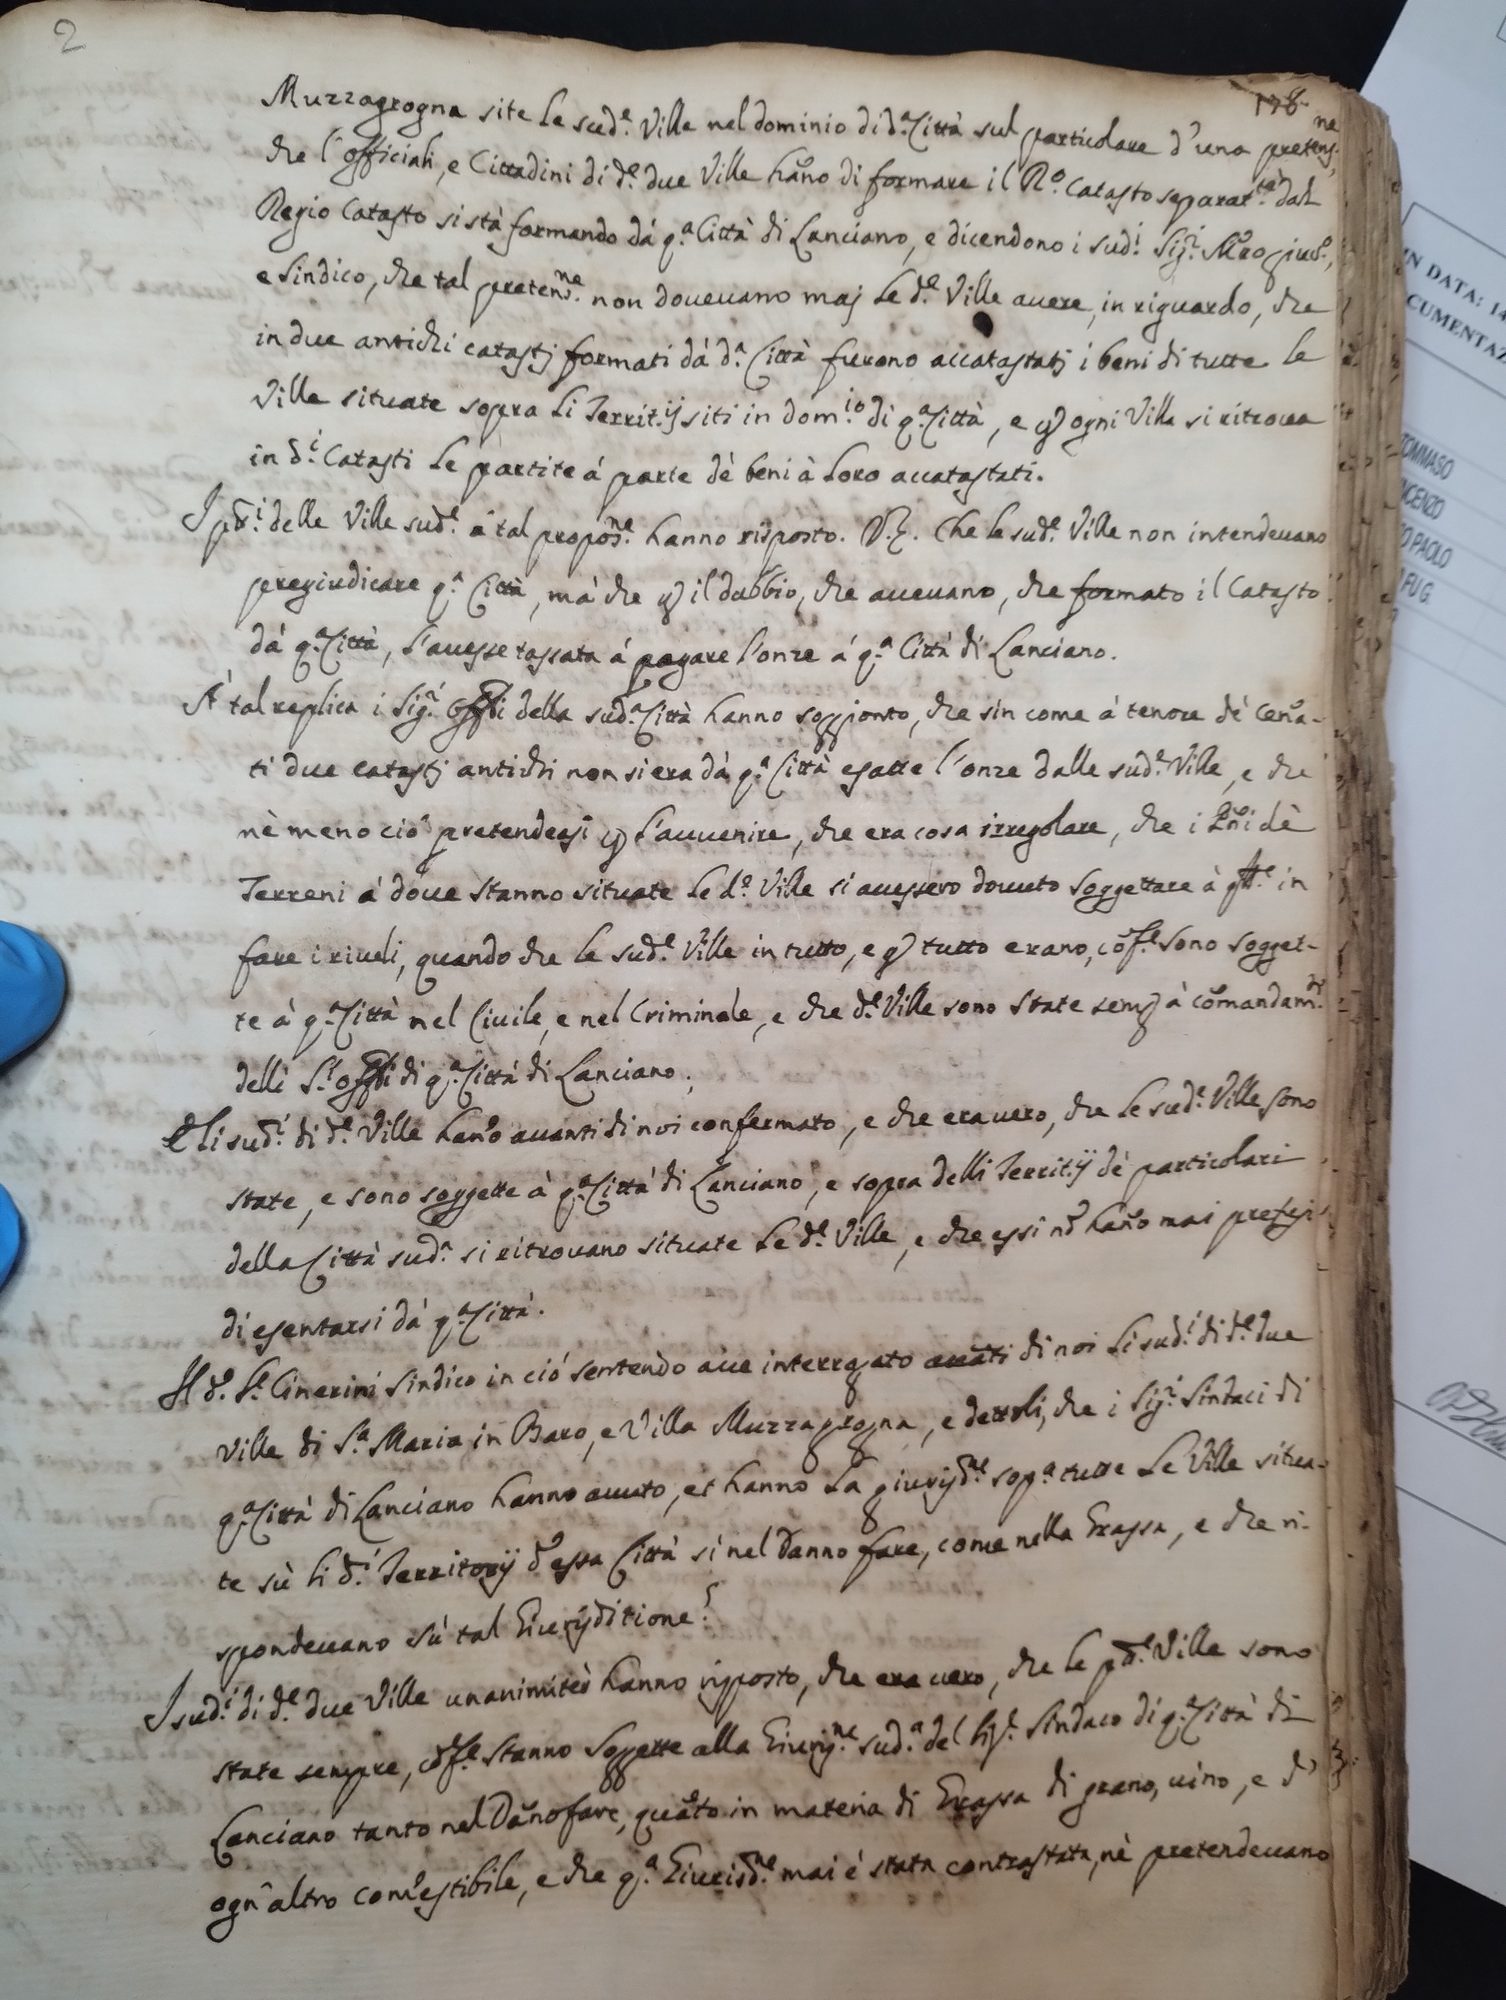 2
178
Muzzagrogna site le sud.e Ville nel dominio di d.a Città sul particolare d'una pretens.ne
che l'officiali, e Cittadini di d.e due Ville hano di formare il R.o Catasto separat.te dal
Regio Catasto si stà formando dá q.a Città di Lanciano, e dicendono i sud.i Sig.i Mro giur.o,
e Sindico, che tal pretens.ne non doueuano maj le d.e Ville auere, in riguardo, che
in due antichi catastj formati dá d.a Città furono accatastatj i beni di tutte le
Ville situate sopra li Territ.ij siti in dom.io di q.a Città, e p ogni Villa si ritroua
in d.i Catasti le partite á parte dè beni à loro accatastati.
I pd.i delle Ville sud.e a tal propos.ne hanno risposto. V.Z. Che le sud.e Ville non intendeuano
pregiudicare q.a Città, má che p il dubbio, che aueuano, che formato il Catasto
dá q.a Città, l'auesse tassata á pagare l'onze á q.a Città di Lanciano.
A' tal replica i Sig.ri Offli della sud.a Città hanno soggionto, che sin come á tenore dé cena-
ti due catastj antichi non si era dá q.a Città esatte l'onze dalle sud.e Ville, e che
nè meno ció pretendeasi p l'auuenire, che era cosa irregolare, che i Pnoi dè
Terreni á doue stanno situate le d.e Ville si auessero douuto soggettare à qste in
fare i riueli, quando che le sud.e Ville in tutto, e p tutto erano, cof.e sono sogget-
te á q.a Città nel Ciuile, e nel Criminale, e che d.e Ville sono state semp à comandam.ti
delli S.ri offli di q.a Città di Lanciano;
E li sud.i di d.e Ville hano auanti di noi confermato, e che era uero, che le sud.e Ville sono
state, e sono soggette à q.a Città di Lanciano, e sopra delli Territ.ij dè particolari
della Città sud.a si ritrouano situate le d.e Ville, e che essi nō hano mai pretesi
di esentarsi dá q.a Città.
Il d.o S.r Cinerini Sindico in ció sentendo aue interrogato auati di noi li sud.i di d.e due
Ville di S.a Maria in Baro, e Villa Muzzagrogna, e dettoli, che i Sig.i Sindaci di
q.a Città di Lanciano hanno auuto, et hanno la giurisd.ne sop.a tutte le Ville situa-
te sù li d.i Territorij d'essa Città sì nel danno fare, come nella Grassa, e che ri-
spondeuano sù tal Giurisditione?
I sud.i di d.e due Ville unanimiter hanno risposto, che era uero, che le pd.e Ville sono
state sempre, cof.e stanno soggette alla Giurisd.ne sud.a del Sig.r Sindaco di q.a Città di
Lanciano tanto nel Danofare, quato in materia di Grassa di grano, uino, e d'
ogn'altro comestibile, e che q.a Giurisd.ne mai é stata contrastata, nè pretendeuano
IN DATA: 14
CUMENTAZ
TOMMASO
NCENZO
O PAOLO
FU G.